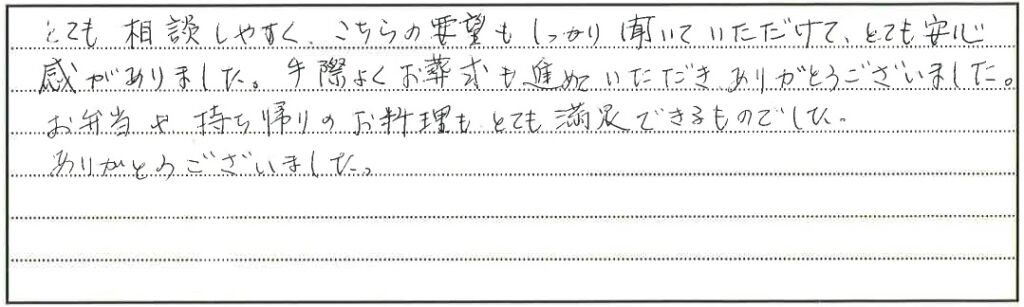 とても 相談しやすく、こちらの要望もしっかり聞いていただけて、とても安心
感がありました。手際よくお葬式も進めていただき、ありがとうございました。
お弁当や 持ち帰りのお料理も、とても満足できるものでした。
ありがとうございました。